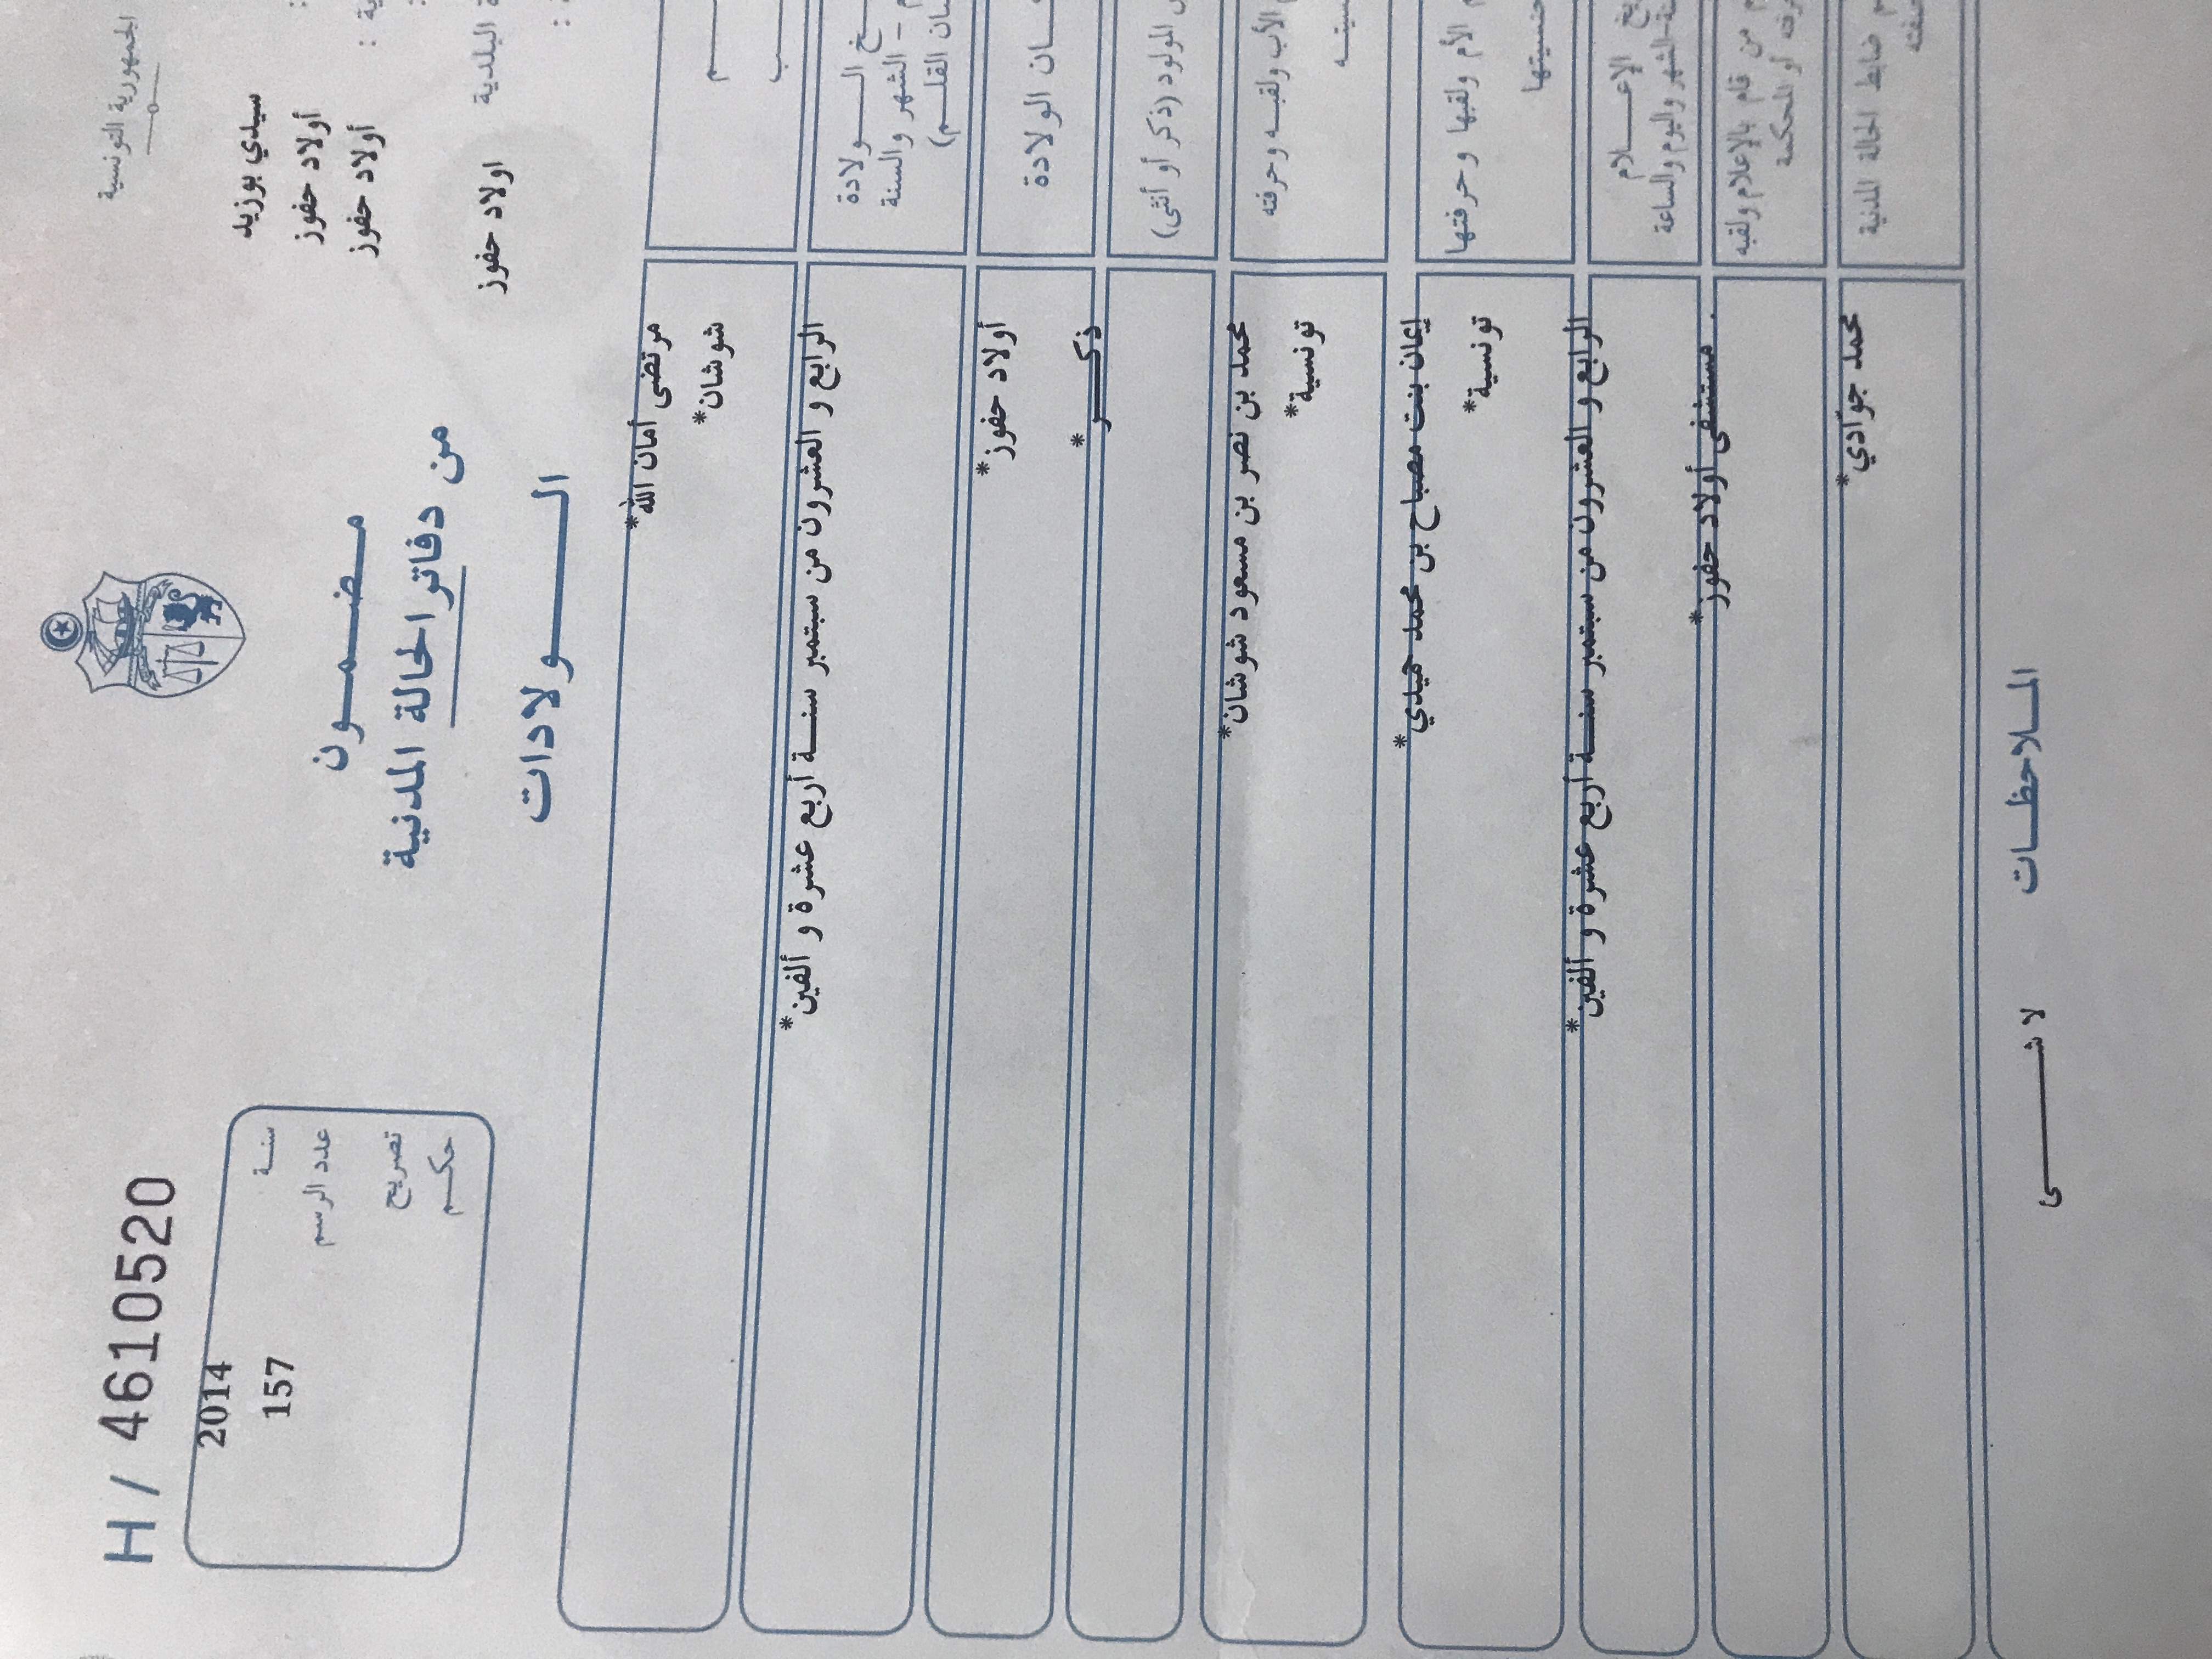 الجمهورية التونسية
H / 4610520
سيدي بوزيد
أولاد حفوز
أولاد حفوز
البلدية
اولاد حفوز
سنة 2014
عدد الرسم 157
تصريح
حكم
مضمون
من دفاتر الحالة المدنية
الولادات
مرتضى أمان الله*
شوشان*
الولادة
الشهر والسنة
القلم)
الرابع و العشرون من سبتمبر سنة أربع عشرة و ألفين*
الولادة
أولاد حفوز*
المولود (ذكر أو أنثى)
ذكر*
الأب ولقبه وحرفته
محمد بن نصر بن مسعود شوشان*
تونسية*
الأم ولقبها وحرفتها
إيمان بنت مصباح بن محمد حميدي*
تونسية*
الإعلام
والشهر واليوم والساعة
الرابع و العشرون من سبتمبر سنة أربع عشرة و ألفين*
من قام بالإعلام ولقبه
أو المحكمة
مستشفى أولاد حفوز*
ضابط الحالة المدنية
محمد جوّادي*
الملاحظات
لا شئ